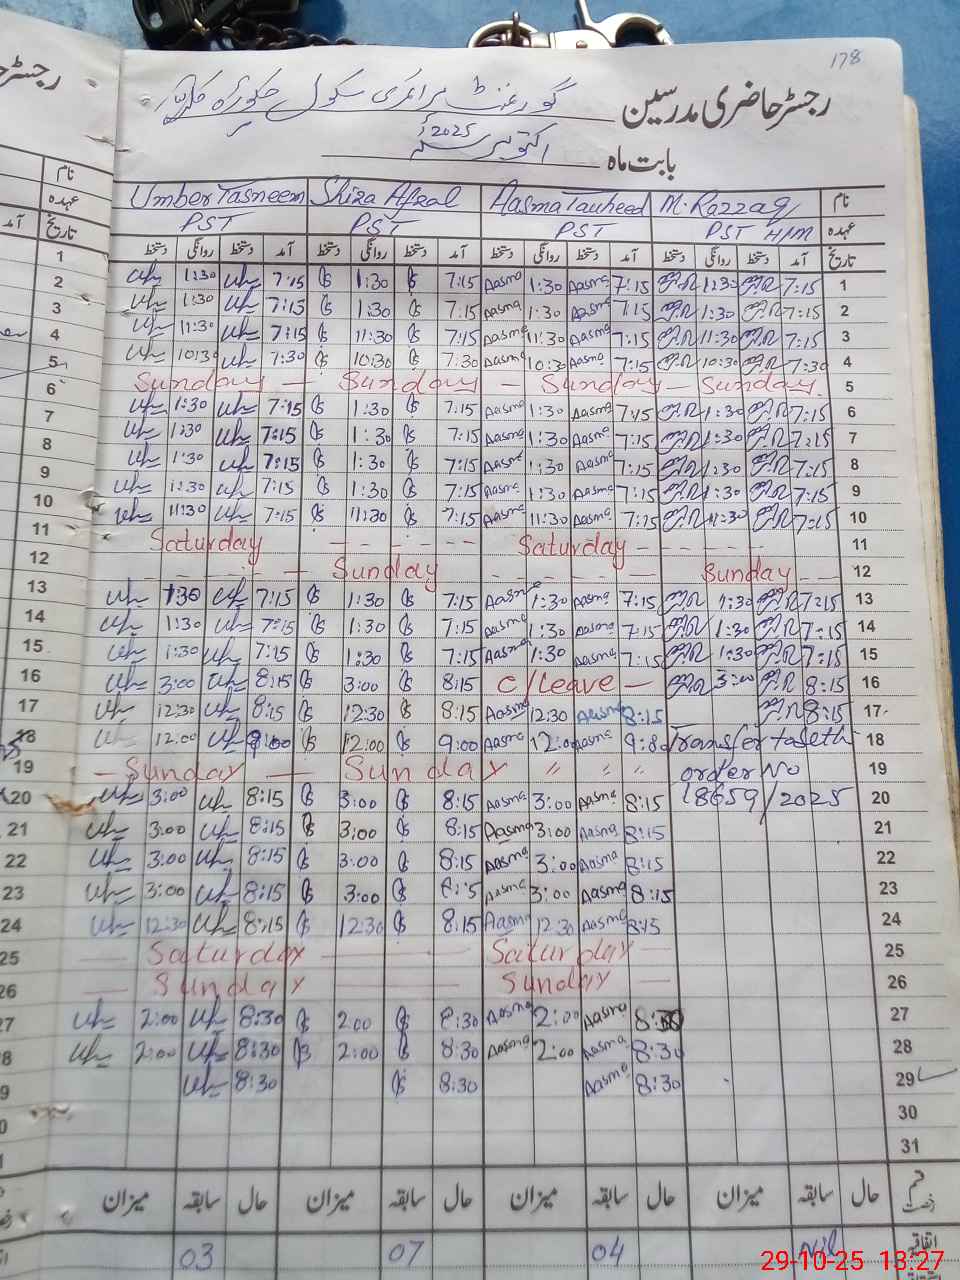 178
رجسٹر حاضری مدرسین گورنمنٹ پرائمری سکول
بابت ماہ اکتوبر 2025
نام M. Razzaq Aasma Tauheed Shiza Afzal Umber Tasneem
عہدہ PST H/M PST PST PST
تاریخ آمد دستخط روانگی دستخط آمد دستخط روانگی دستخط آمد دستخط روانگی دستخط آمد دستخط روانگی دستخط
1:30 7:15 1:30 7:15 Aasma 1:30 Aasma 7:15 1:30 7:15 1
1:30 7:15 1:30 7:15 Aasma 1:30 Aasma 7:15 1:30 7:15 2
11:30 7:15 11:30 7:15 Aasma 11:30 Aasma 7:15 11:30 7:15 3
10:30 7:30 10:30 7:30 Aasma 10:30 Aasma 7:15 10:30 7:30 4
Sunday — Sunday — Sunday — Sunday 5
1:30 7:15 1:30 7:15 Aasma 1:30 Aasma 7:15 1:30 7:15 6
1:30 7:15 1:30 7:15 Aasma 1:30 Aasma 7:15 1:30 7:15 7
1:30 7:15 1:30 7:15 Aasma 1:30 Aasma 7:15 1:30 7:15 8
1:30 7:15 1:30 7:15 Aasma 1:30 Aasma 7:15 1:30 7:15 9
11:30 7:15 11:30 7:15 Aasma 11:30 Aasma 7:15 11:30 7:15 10
Saturday - - - - - - Saturday - - - - - 11
- - - - — Sunday - - - - - — Sunday - - 12
1:30 7:15 1:30 7:15 Aasma 1:30 Aasma 7:15 1:30 7:15 13
1:30 7:15 1:30 7:15 Aasma 1:30 Aasma 7:15 1:30 7:15 14
1:30 7:15 1:30 7:15 Aasma 1:30 Aasma 7:15 1:30 7:15 15
3:00 8:15 3:00 8:15 C/Leave — 3:00 8:15 16
12:30 8:15 12:30 8:15 Aasma 12:30 Aasma 8:15 8:15 17
12:00 9:00 12:00 9:00 Aasma 12:00 Aasma Transfer to 18
— Sunday — Sunday " " " order No 19
3:00 8:15 3:00 8:15 Aasma 3:00 Aasma 8:15 18659/2025 20
3:00 8:15 3:00 8:15 Aasma 3:00 Aasma 8:15 21
3:00 8:15 3:00 8:15 Aasma 3:00 Aasma 8:15 22
3:00 8:15 3:00 Aasma 3:00 Aasma 8:15 23
12:30 8:15 12:30 8:15 Aasma 12:30 Aasma 8:15 24
— Saturday — — Saturday — 25
— Sunday — — Sunday — 26
2:00 8:30 2:00 8:30 Aasma 2:00 Aasma 8:30 27
2:00 8:30 2:00 8:30 Aasma 2:00 Aasma 8:30 28
8:30 8:30 Aasma 8:30 29
30
31
قسم رخصت حال سابقہ میزان حال سابقہ میزان حال سابقہ میزان حال سابقہ میزان
اتفاقیہ Nil 04 07 03
29-10-25 13:27
نام
عہدہ
تاریخ
آمد
1
2
3
4
5
6
7
8
9
10
11
12
13
14
15
16
17
18
19
20
21
22
23
24
25
26
27
28